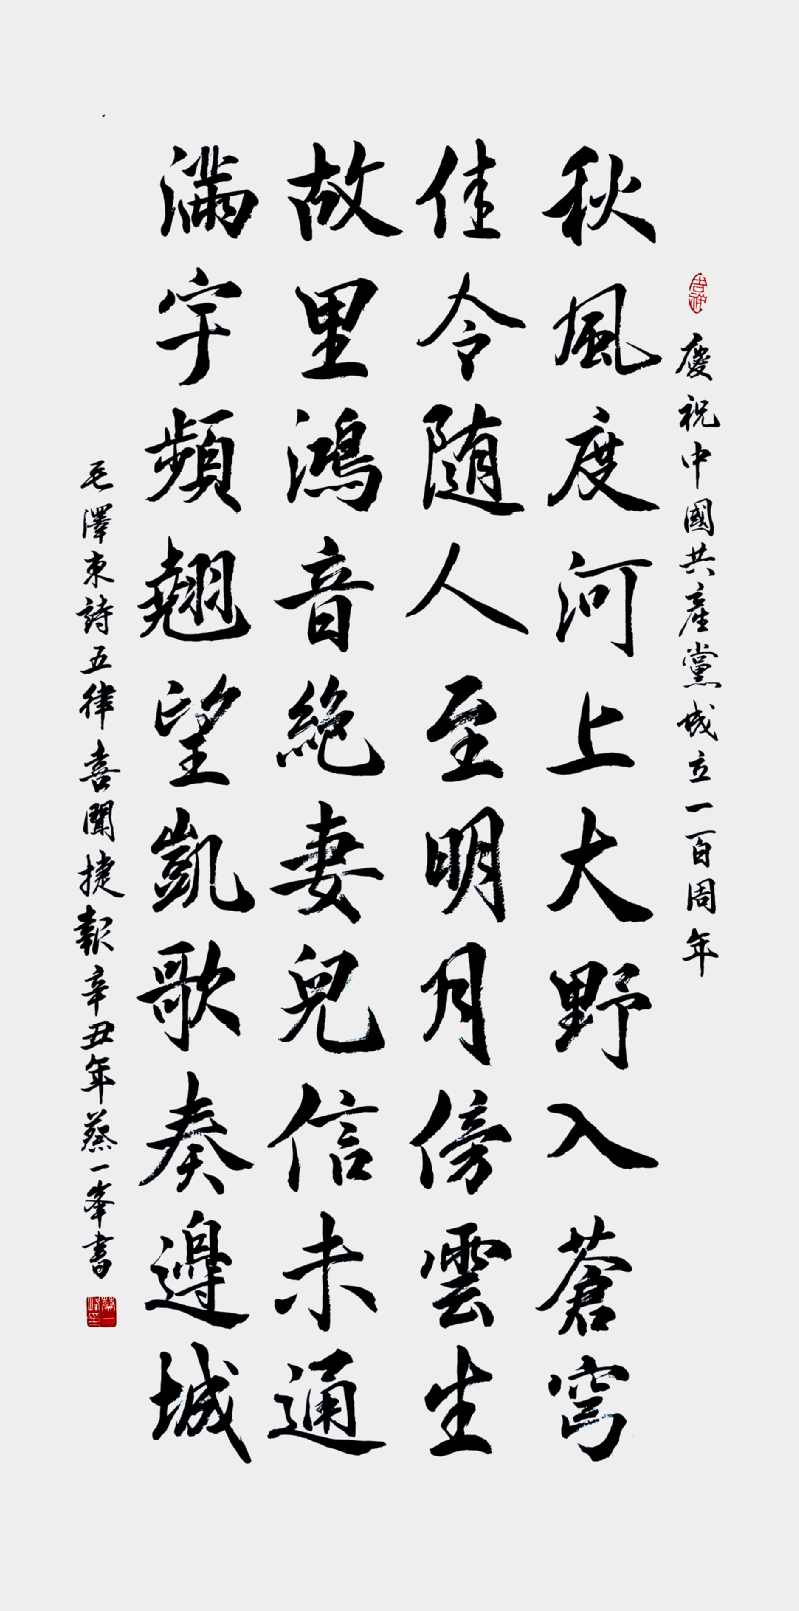 慶祝中國共產黨成立一百周年
秋風度河上大野入蒼穹
佳令隨人至明月傍雲生
故里鴻音絕妻兒信未通
滿宇頻翹望凱歌奏邊城
毛澤東詩五律喜聞捷報辛丑年蔡一峯書